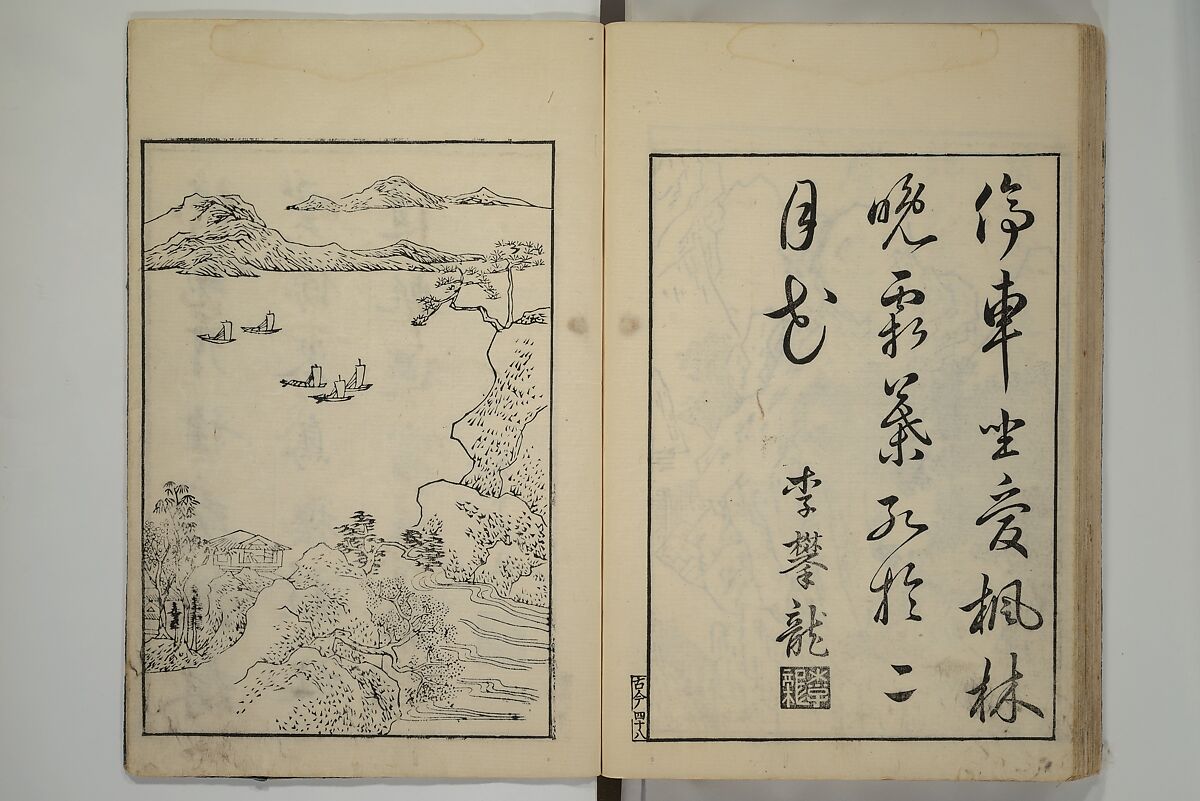 停車坐愛楓林
晚霜葉紅於二
月花
李攀龍
古今 四十八